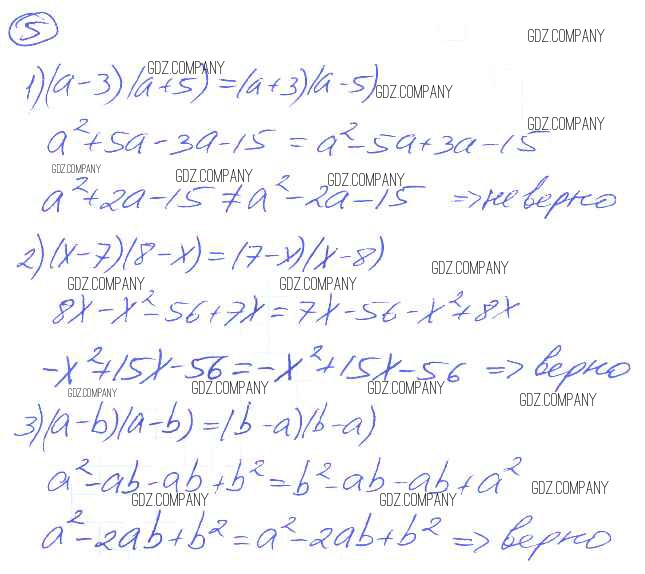 5
GDZ.COMPANY
GDZ.COMPANY
1) (a-3)(a+5) = (a+3)(a-5)
GDZ.COMPANY
GDZ.COMPANY
a²+5a-3a-15 = a²-5a+3a-15
GDZ.COMPANY
GDZ.COMPANY
GDZ.COMPANY
a²+2a-15 ≠ a²-2a-15 => не верно
2) (x-7)(8-x) = (7-x)(x-8)
GDZ.COMPANY
GDZ.COMPANY
GDZ.COMPANY
8x-x²-56+7x = 7x-56-x²+8x
-x²+15x-56 = -x²+15x-56 => верно
GDZ.COMPANY
GDZ.COMPANY
GDZ.COMPANY
GDZ.COMPANY
3) (a-b)(a-b) = (b-a)(b-a)
a²-ab-ab+b² = b²-ab-ab+a²
GDZ.COMPANY
GDZ.COMPANY
GDZ.COMPANY
a²-2ab+b² = a²-2ab+b² => верно